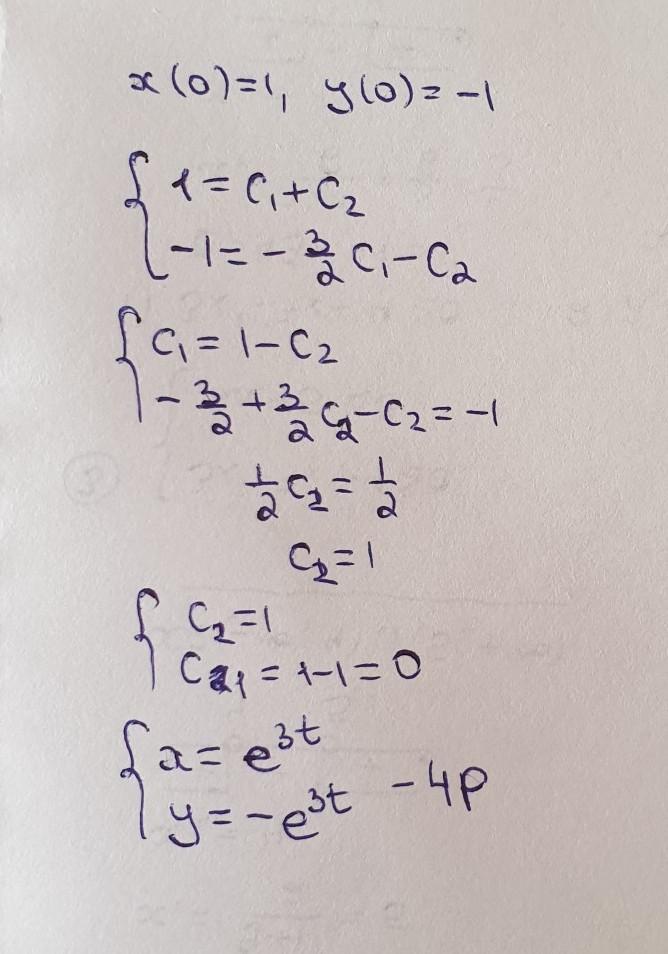 x(0)=1, y(0)=-1
{ 1=C₁+C₂
-1=-3/2 C₁-C₂
{ C₁=1-C₂
-3/2+3/2 C₂-C₂=-1
1/2 C₂=1/2
C₂=1
{ C₂=1
C₁=1-1=0
{ x=e^{3t}
y=-e^{3t} -4p